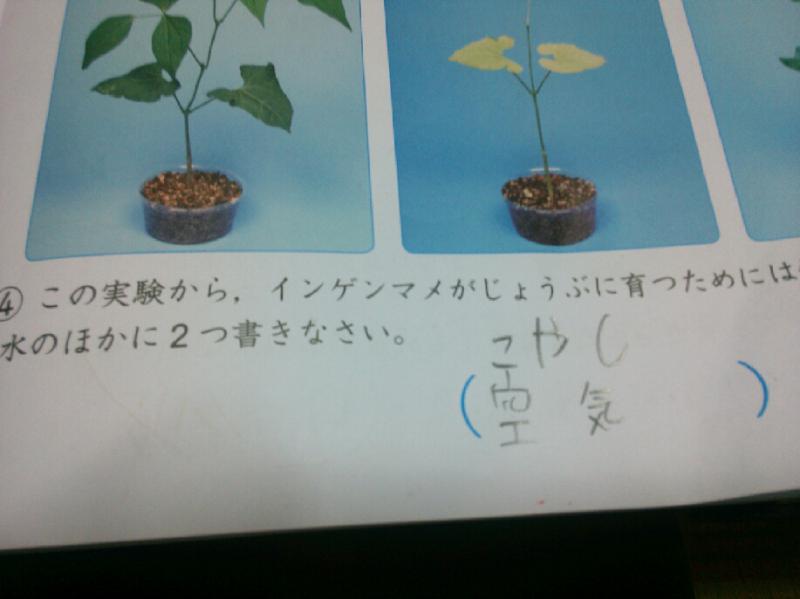 ④ この実験から，インゲンマメがじょうぶに育つためには
水のほかに2つ書きなさい。
こやし
(空気)